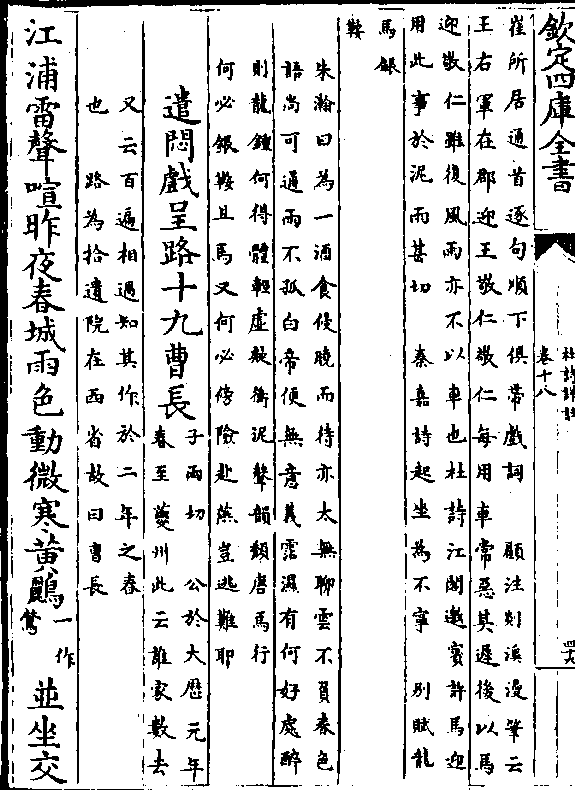 欽定四庫全書
杜詩詳註
卷十八
崔所居通首逐句順下俱帶戲詞　顧注剡溪漫筆云
王右軍在郡迎王敬仁敬仁每用車常惡其遲後以馬
迎敬仁雖復風雨亦不以車也杜詩江閣邀賓許馬迎
用此事於泥雨甚切　秦嘉詩起坐為不寧　別賦龍
馬銀
鞍
朱瀚曰為一酒食侵曉而待亦太無聊雲不負春色
語尚可通雨不孤白帝便無意義霑濕有何好處醉
則龍鍾何得體輕虛敧衝泥聲韻頹唐馬行
何必銀鞍且馬又何必傍險赴燕豈逃難耶
遣悶戲呈路十九曹長
子兩切　公於大歷元年
春至夔州此云誰家數去
又云百遍相過知其作於二年之春
也　路為拾遺院在西省故曰曹長
江浦雷聲喧昨夜春城雨色動微寒黃鸝一作鶯並坐交